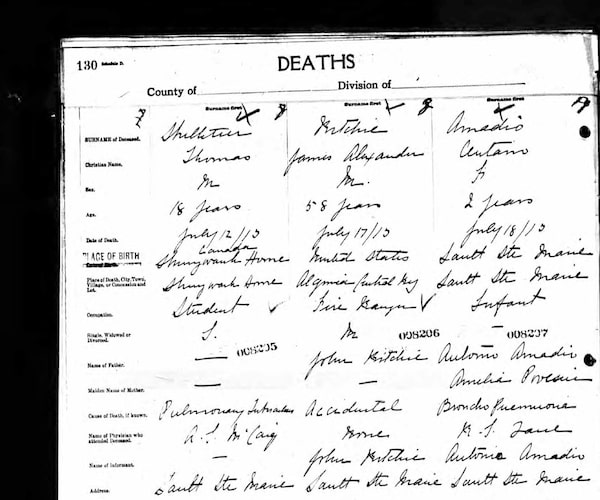 130 Schedule D. DEATHS
County of Division of
Surname first Surname first Surname first
SURNAME of Deceased. Ritchie Amadio
Christian Name. Thomas James Alexander
Sex. M M. F
Age. 18 years 58 years 2 years
Date of Death. July 12/13 July 17/13 July 18/13
PLACE OF BIRTH Canada Shingwauk Home United States Sault Ste Marie
Place of Death, City, Town, Village, or Concession and Lot. Shingwauk Home Algoma Central Sault Ste Marie
Occupation. Student Fire Ranger Infant
Single, Widowed or Divorced. S. M —
008205 008206 008207
Name of Father. — John Ritchie Antonio Amadio
Maiden Name of Mother. — — Amelia
Cause of Death, if known. Pulmonary Accidental Broncho Pneumonia
Name of Physician who attended Deceased. A. S. McCaig None
Name of Informant. — John Ritchie Antonio Amadio
Address. Sault Ste Marie Sault Ste Marie Sault Ste Marie